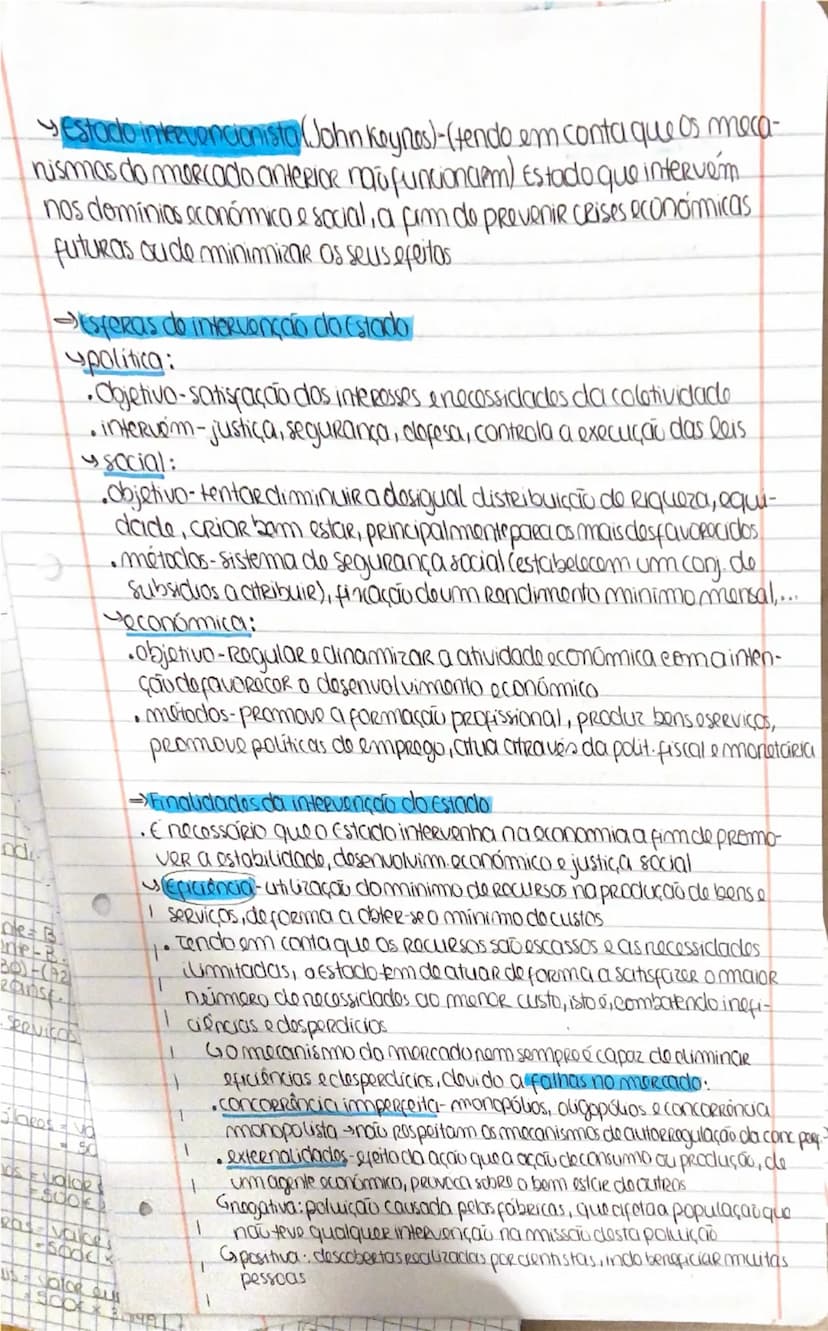 ↘Estado intervencionista (John Keynes)-(tendo em conta que os meca-
nismos do mercado anterior não funcionarem) Estado que intervém
nos domínios económico e social, a fim de prevenir crises económicas
futuras ou de minimizar os seus efeitos
⇒Esferas de intervenção do Estado
↘política:
. Objetivo-satisfação dos interesses e necessidades da coletividade
. intervém-justiça, segurança, defesa, controla a execução das leis
↘social:
. objetivo-tentar diminuir a desigual distribuição de riqueza, equi-
dade, criar bem estar, principalmente para os mais desfavorecidos
. métodos-sistema de segurança social (estabelecem um conj. de
subsídios a atribuir), fixação de um rendimento mínimo mensal,...
↘económica:
. objetivo-Regular e dinamizar a atividade económica com a inten-
ção de favorecer o desenvolvimento económico
. métodos-promove a formação profissional, produz bens e serviços,
promove políticas de emprego, atua através da polit. fiscal e monetária
⇒Finalidades da intervenção do Estado
. É necessário que o Estado intervenha na economia a fim de promo-
ver a estabilidade, desenvolvim. económico e justiça social
↘Eficiência-utilização do mínimo de recursos na produção de bens e
serviços, de forma a obter-se o mínimo de custos
. Tendo em conta que os recursos são escassos e as necessidades
ilimitadas, o estado tem de atuar de forma a satisfazer o maior
número de necessidades ao menor custo, isto é, combatendo inefi-
ciências e desperdícios
↳o mecanismo do mercado nem sempre é capaz de eliminar
eficiências e desperdícios, devido a falhas no mercado:
. concorrência imperfeita-monopólios, oligopólios e concorrência
monopolista →não respeitam os mecanismos de autorregulação da conc perf.
. externalidades-efeito da ação que a ação de consumo ou produção, de
um agente económico, provoca sobre o bem estar de outros
↳negativa: poluição causada pelas fábricas, que afeta a população que
não teve qualquer intervenção na missão desta poluição
↳positiva: descobertas realizadas por cientistas, indo beneficiar muitas
pessoas